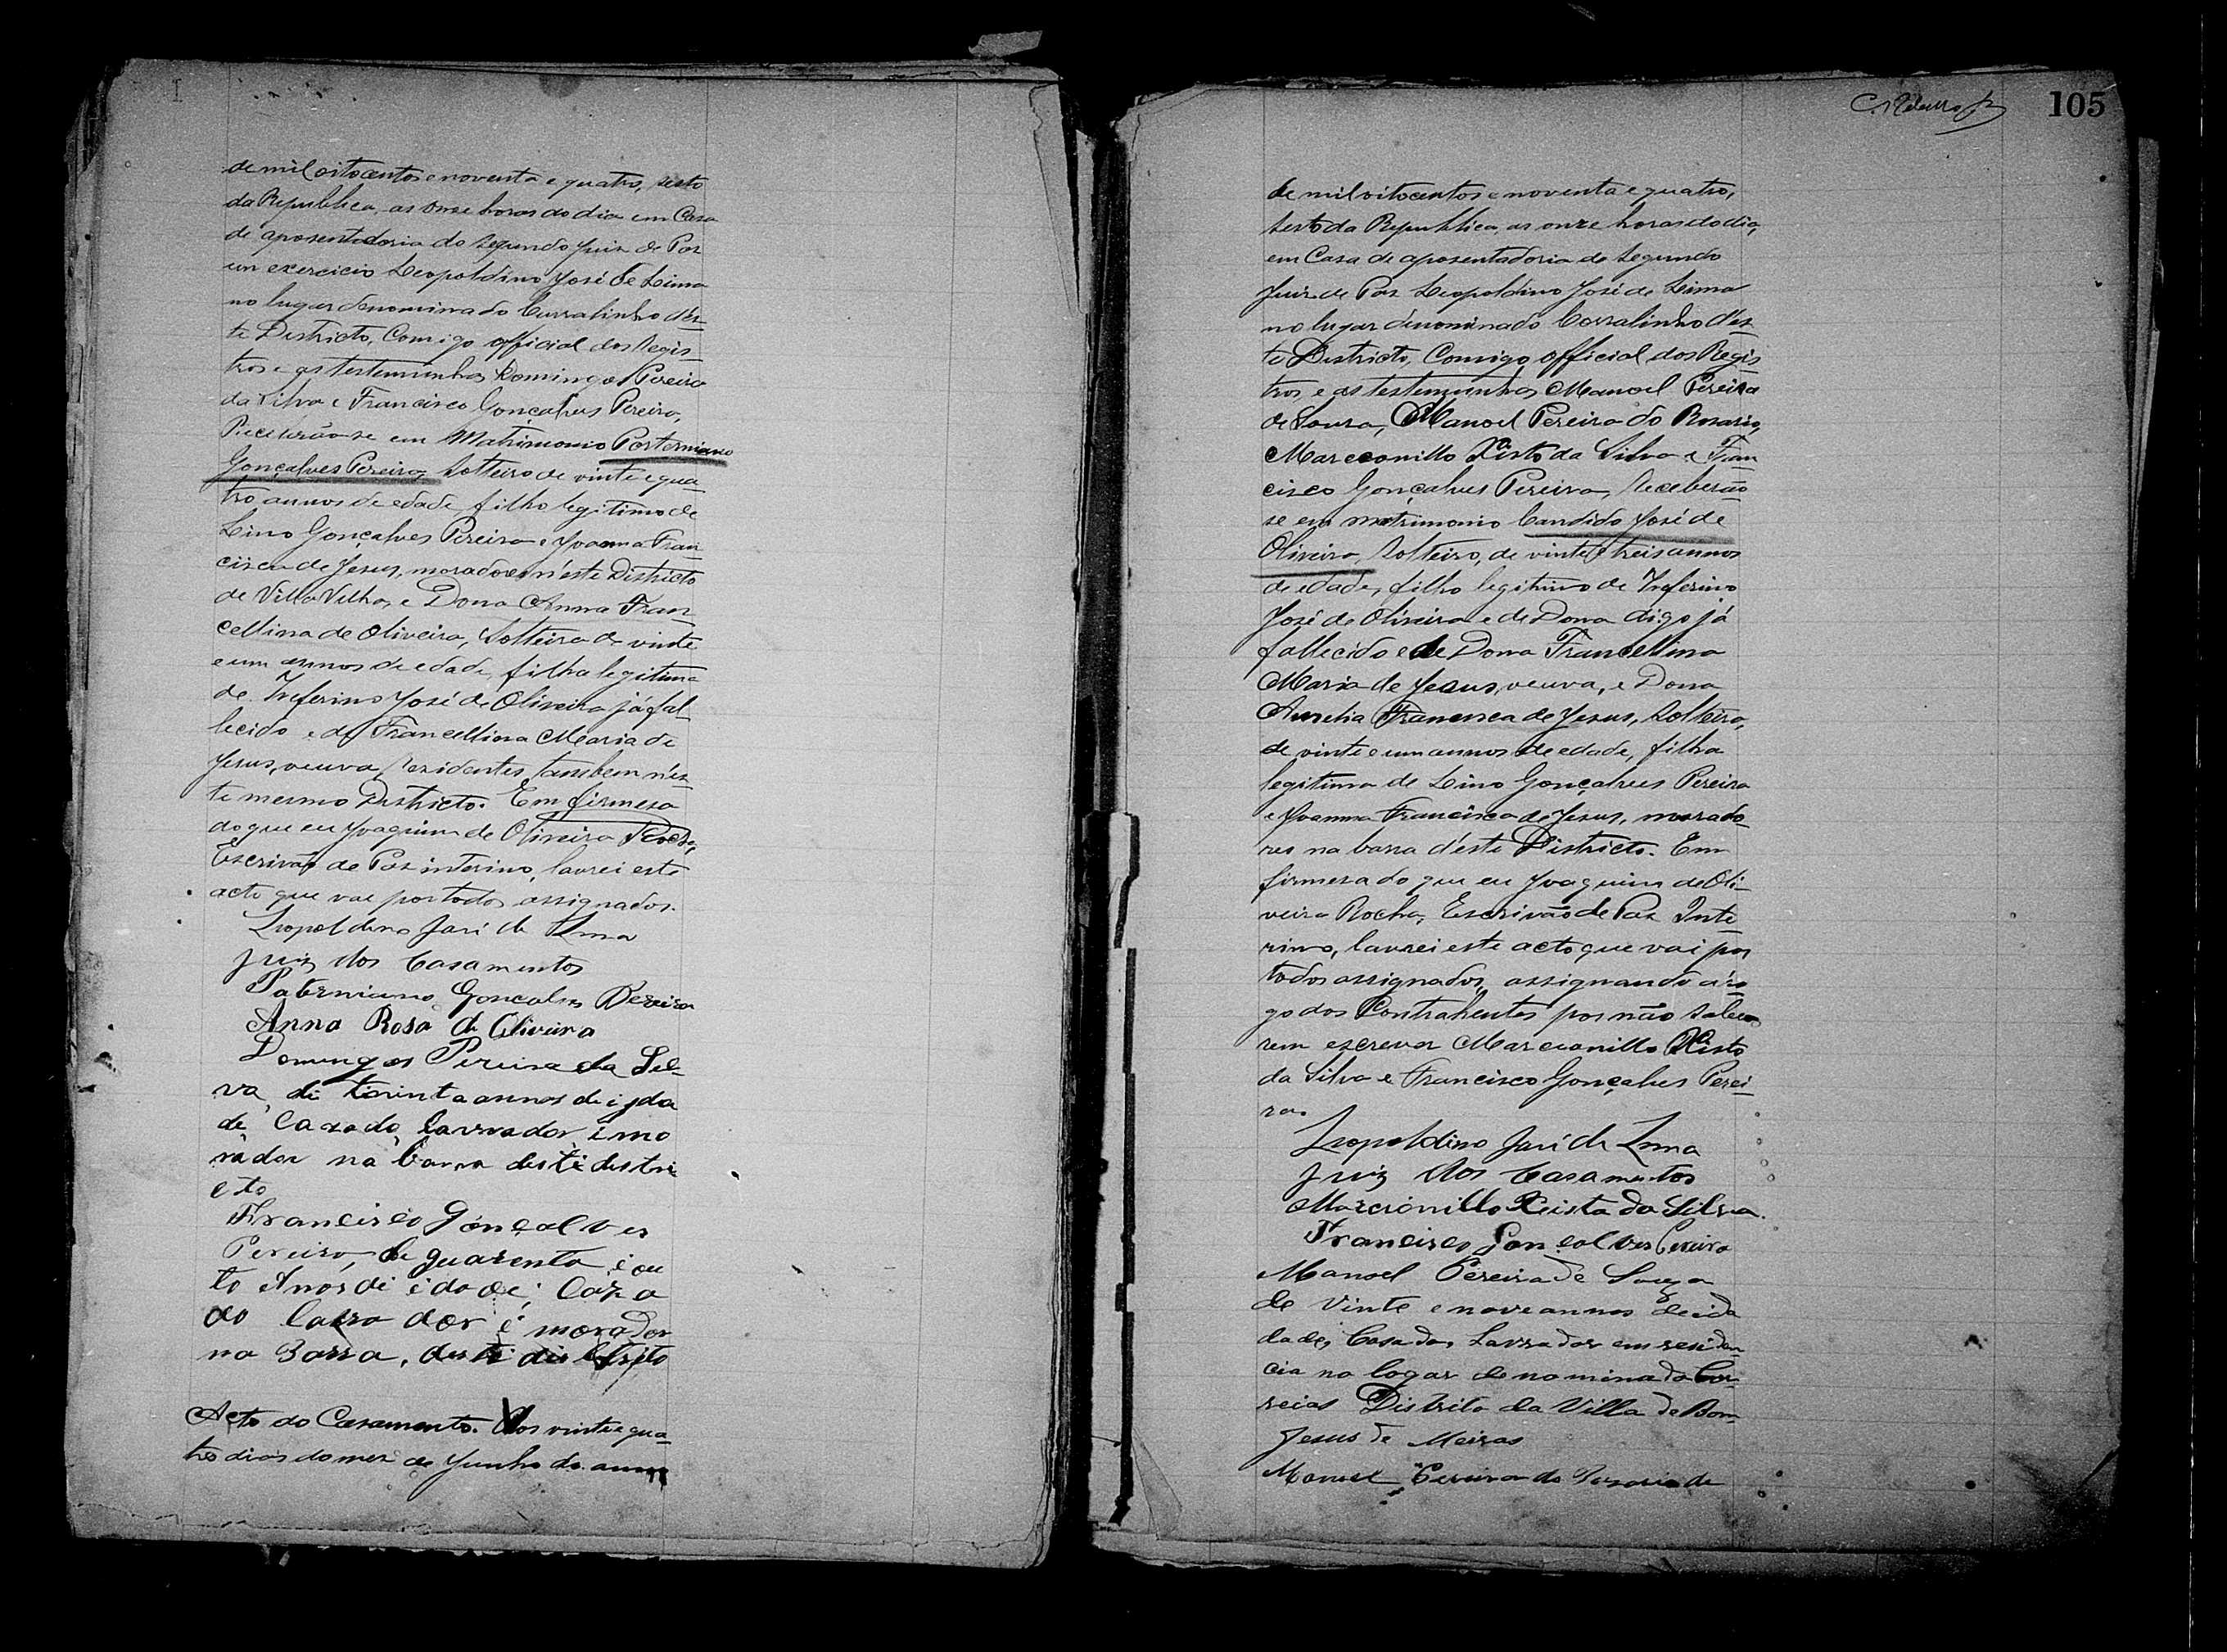 de mil oitocentos e noventa e quatro, sexto
da Republica, as onze horas do dia em Casa
de aposentadoria do segundo Juiz de Paz
em exercicio Leopoldino José de Lima
no lugar denominado Curralinho d'es-
te Districto, Comigo official dos Regis
tros e as testemunhas Domingos Pereira
da Silva e Francisco Gonçalves Pereira,
Receberão-se em Matrimonio Porterniano
Gonçalves Pereira, Solteiro de vinte e qua-
tro annos de edade, filho legitimo de
Lino Gonçalves Pereira e Joanna Fran
cisca de Jesus, moradores n'este Districto
de Villa Velha, e Dona Anna Fran-
cellina de Oliveira, Solteira de vinte
e um annos de edade, filha legitima
de Zeferino José de Oliveira já fal-
lecido e de Francellina Maria de
Jesus, veuva, rezidentes tambem n'es-
te mesmo Districto. Em firmesa
do que eu Joaquim de Oliveira Rocha,
Escrivão de Paz interino, lavrei este
acto que vae por todos assignados.
Leopoldino José de Lima
Juiz dos Casamentos
Paterniano Gonçalves Pereira
Anna Rosa de Oliveira
Domingos Pereira da Sil-
va, de trinta annos de i da
de, Cazado, lavrador, i mo
rador na barra deste destri
cto
Francisco Gonçalves
Pereira, de quarenta i ou
to Anos di idade; Caza
do lavrador i morador
na Barra, deste districto
Acto do Casamento. Aos vinte e qua-
tro dias do mez de Junho do anno
105
de mil oitocentos e noventa e quatro,
sexto da Republica, as onze horas do dia,
em Casa de aposentadoria do segundo
Juiz de Paz Leopoldino José de Lima
no lugar denominado Corralinho d'es-
te Districto, Comigo official dos Regis
tros, e as testemunhas Manoel Pereira
de Souza, Manoel Pereira do Rosario,
Marceonillo Xisto da Silva e Fran
cisco Gonçalves Pereira, Receberão
se em matrimonio Candido José de
Oliveira, Solteiro, de vinte e treis annos
de edade, filho legitimo de Zeferino
José de Oliveira e de Dona digo já
fallecido e de Dona Francellina
Maria de Jesus, veuva, e Dona
Aurelia Francisca de Jesus, Solteira,
de vinte e um annos de edade, filha
legitima de Lino Gonçalves Pereira
e Joanna Francisca de Jesus, morado-
res na barra d'este Districto. Em
firmesa do que eu Joaquim de Oli-
veira Rocha, Escrivão de Paz Inte
rino, lavrei este acto que vai por
todos assignados, assignando á ro-
go dos Contrahentes por não sabe
rem escrever Marcianillo Xisto
da Silva e Francisco Gonçalves Perei
ra.
Leopoldino José de Lima
Juiz dos Casamentos
Marcionillo Xisto da Silva.
Francisco Gonçalves Pereira
Manoel Pereira de Souza
de vinte e nove annos de ida
dade, Casado, Lavrador em residen-
cia no logar denominado Cor-
reias Distrito da Villa de Bom
Jesus de Meiras
Manoel Pereira do Rosario de